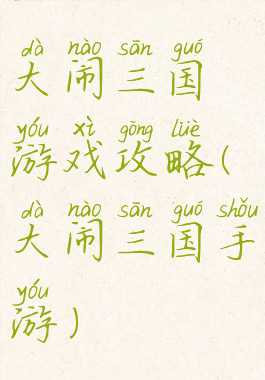 dà nào sān guó
大闹三国
yóu xì gōng lüè
游戏攻略(
dà nào sān guó shǒu
大闹三国手
yóu
游)